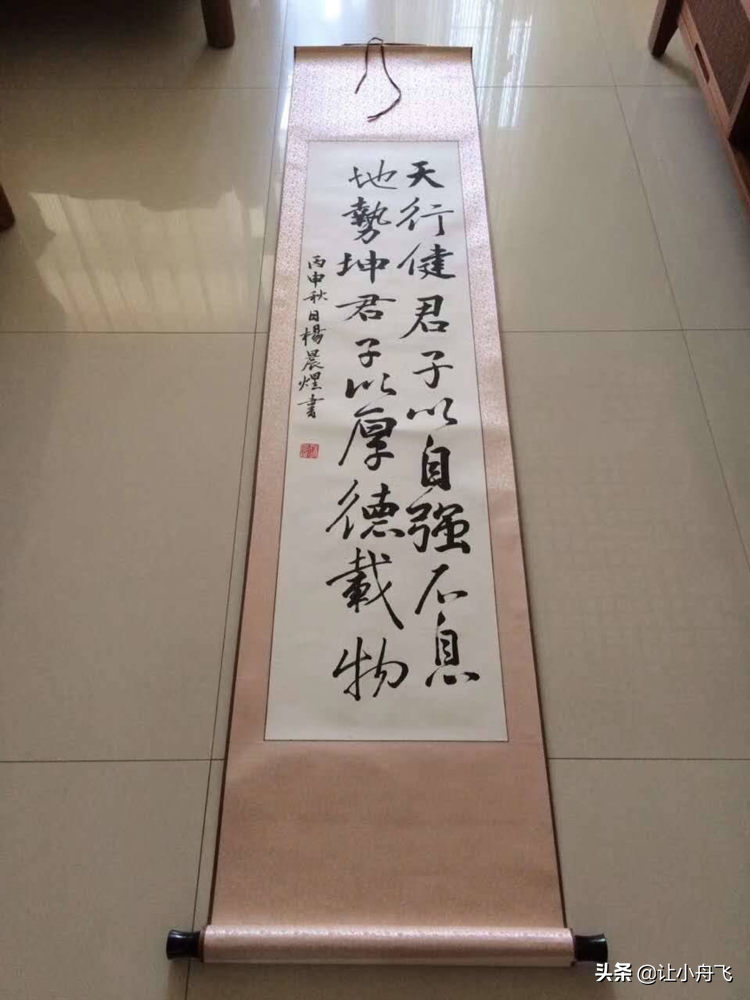 天行健君子以自强不息
地勢坤君子以厚德載物
丙申秋日楊晨煜書
头条 @让小舟飞